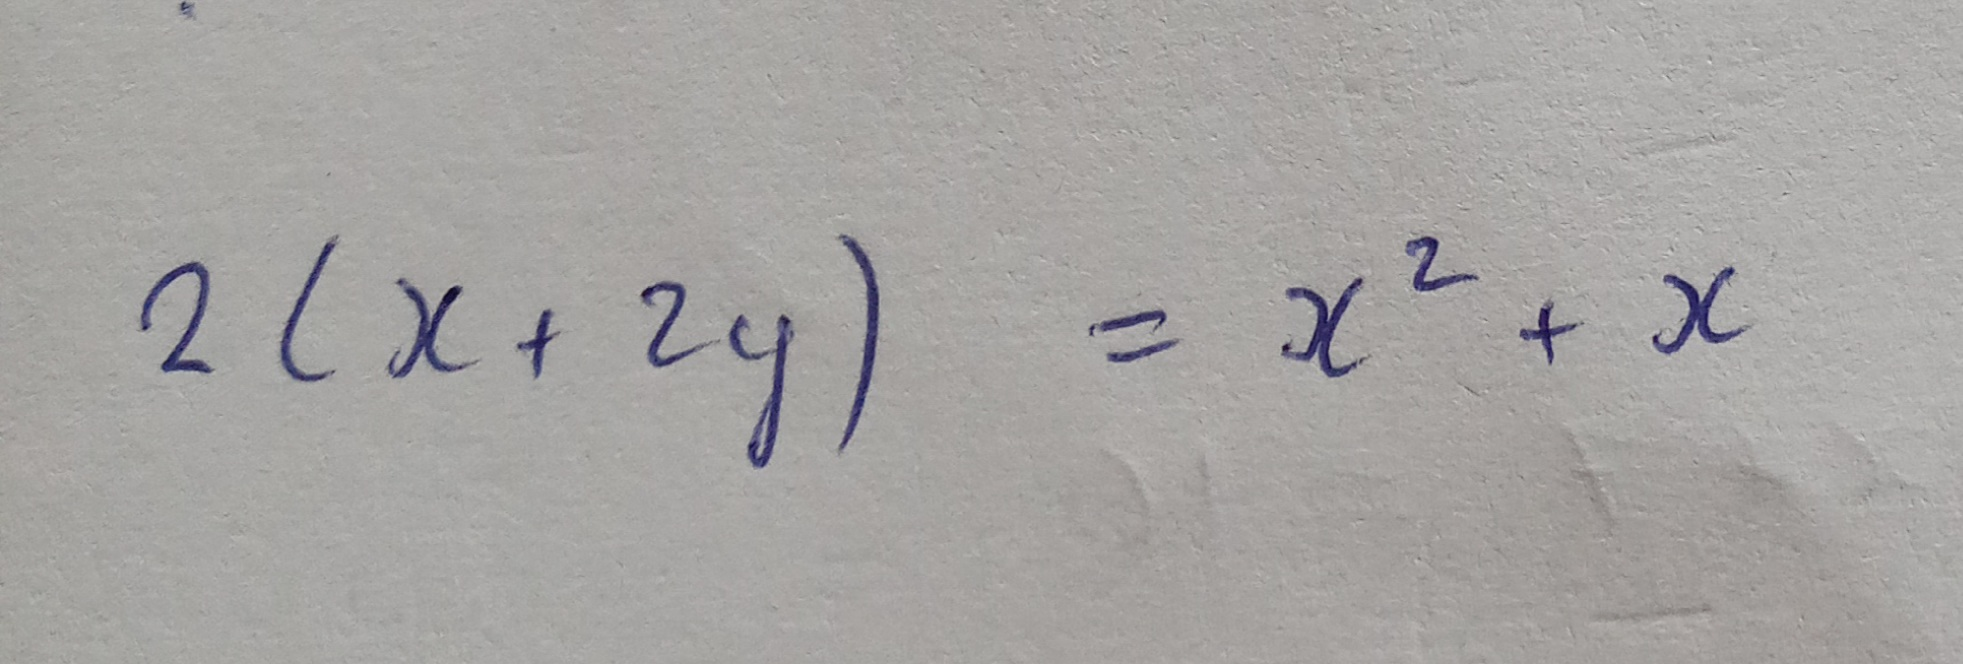 2(x+2y) = x² + x